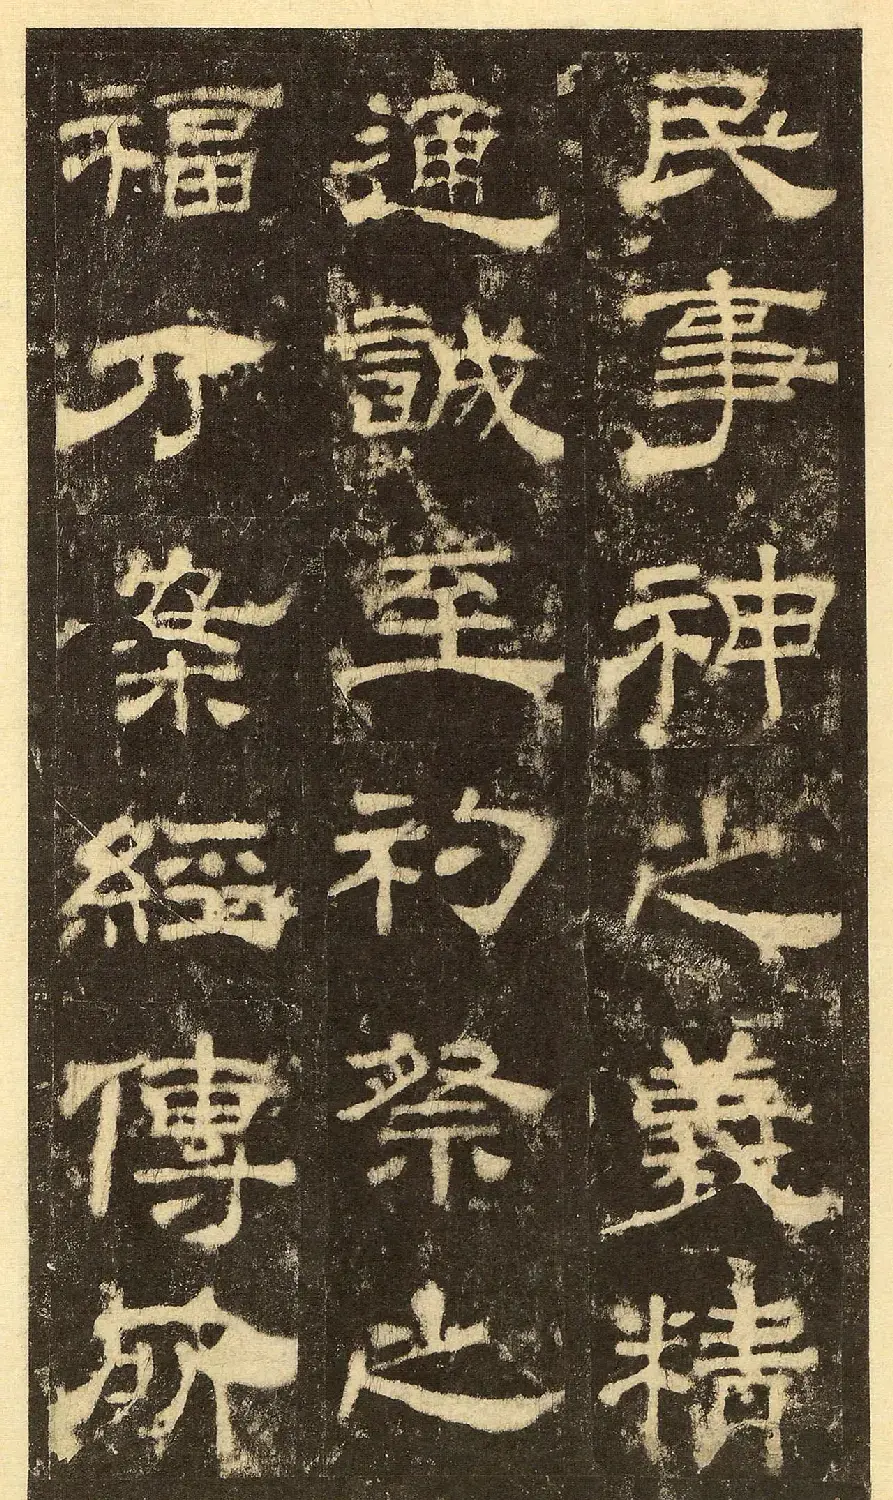 民事神之義精
通誠至礿祭之
福乃案經傳所